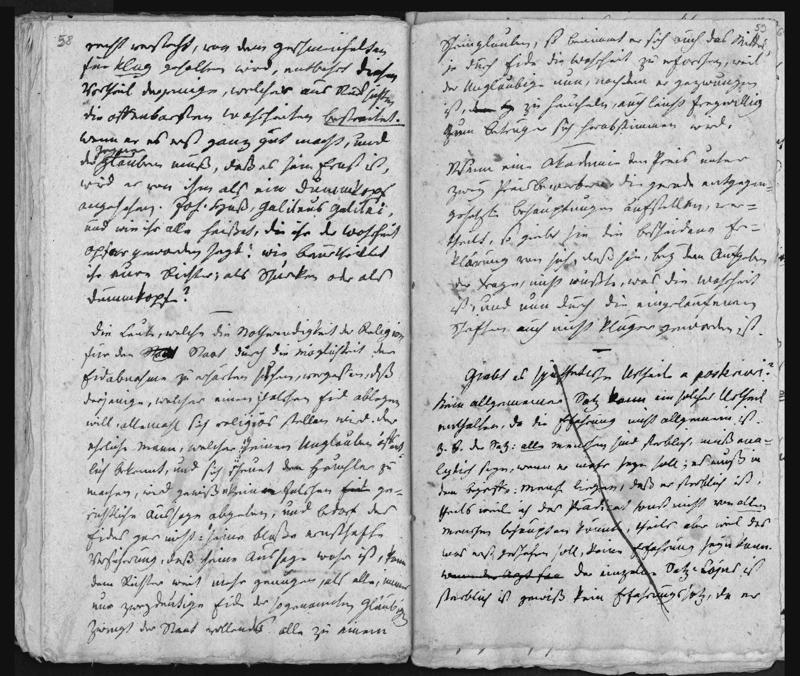 58
recht versteht, von dem großen Haufen
für klug gehalten wird, entbehrt diesen
Vortheil derjenige, welcher aus
die offenbarsten Wahrheiten bestreitet.
wenn er es erst ganz gut macht, und
der Gegner
glauben muß, daß es sein Ernst ist,
wird er von ihm als ein Dummkopf
angesehen. Joh. Huß, Galileus Galilei,
und wie ihr alle heißet, die ihr der Wahrheit
Opfer geworden seyd! wie beurtheiltet
ihr eure Richter; als Schurken oder als
Dummköpfe?
Die Leute, welche die Nothwendigkeit der Religion
für den Staat durch die Möglichkeit der
Eidabnahme zu erhärten suchen, vergessen, daß
derjenige, welcher einen falschen Eid ablegen
will, allemahl sich religiös stellen wird. der
ehrliche Mann, welcher seinen Unglauben öffent-
lich bekennt, und sich scheuet den Heuchler zu
machen, wird gewiß keine falschen ge-
richtliche Aussage abgeben, und bedarf des
Eides gar nicht: seine bloße ernsthafte
Versicherung, daß seine Aussage wahr ist, kann
dem Richter weit mehr genügen, als alle, immer
nur zweydeutige Eide der sogenannten Gläubigen
zwingt der Staat vollends alle zu einem
59
Scheinglauben, so benimmt er sich auch das Mittel
je durch Eide die Wahrheit zu erforschen, weil
der Unglaubige nun, nachdem er gezwungen
ist, zu heucheln, auch leicht freywillig
zum Betrüger sich herabstimmen wird.
Wenn eine Akademie den Preis unter
zwey Preisbewerber die gerade entgegen-
gesetzte Behauptungen aufstellen, ver-
theilt, so giebt sie die bescheidene Er-
klärung von sich, daß sie, bey dem Aufgeben
der Frage, nicht wußte, was die Wahrheit
ist, und nun durch die eingelaufenen
Schriften auch nicht klüger geworden ist.
Giebt es synthetische Urtheile a posteriori?
Kein allgemeiner Satz kann ein solches Urtheil
enthalten, da die Erfahrung nicht allgemein ist.
z. B. der Satz: alle Menschen sind sterblich, muß ana-
lytisch seyn, wenn er wahr seyn soll; es muß in
dem Begriffe: Mensch liegen, daß er sterblich ist;
theils weil ich das Prädicat sonst nicht von allen
Menschen behaupten könnte, theils aber weil das
was erst geschehen soll, keine Erfahrung seyn kann.
der einzelne Satz: Cajus ist
sterblich ist gewiß kein Erfahrungssatz, da er